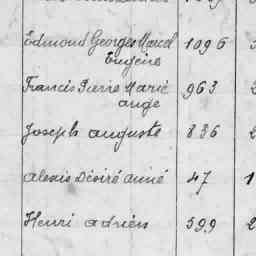 Edmond Georges Marcel 1096
Eugène
Francis Pierre Marie 963
ange
Joseph auguste 836
alexis Désiré aimé 47 1
Henri adrien 599 2